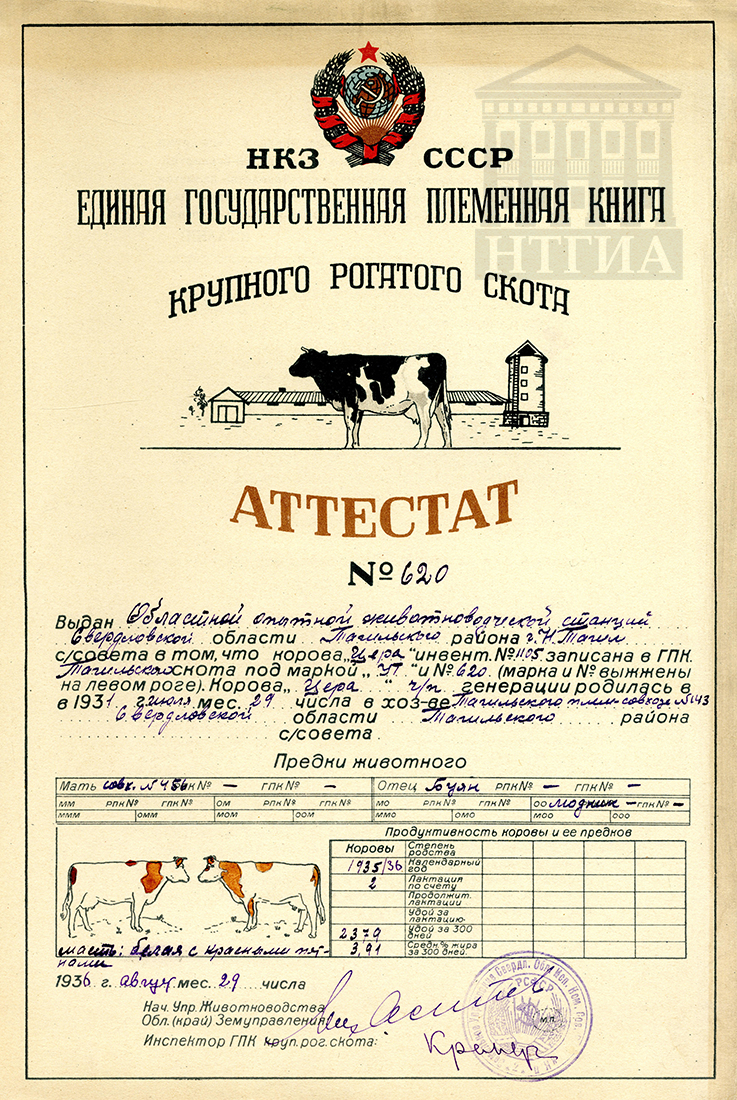 НКЗ СССР
НТГИА
ЕДИНАЯ ГОСУДАРСТВЕННАЯ ПЛЕМЕННАЯ КНИГА
КРУПНОГО РОГАТОГО СКОТА
АТТЕСТАТ
№ 620
Выдан Областной опытной животноводческой станций
Свердловской области Тагильского района г. Н. Тагил
с/совета в том, что корова „Цера" инвент. № 1105 записана в ГПК.
Тагильского скота под маркой „УТ" и № 620. (марка и № выжжены
на левом роге). Корова „Цера" ч/п. генерации родилась в
в 1931 г. июля мес. 29 числа в хоз-ве Тагильского плем-совхоза № 143
Свердловской области Тагильского района
с/совета
Предки животного
Мать совх. № 456 РПК № — ГПК № — Отец Буян РПК № — ГПК № —
ММ РПК № ГПК № ОМ РПК № ГПК № МО РПК № ГПК № ОО Модник — ГПК № —
МММ ОММ МОМ ООМ ММО ОМО МОО ООО
Продуктивность коровы и ее предков
Коровы Степень родства
1935/36 Календарный год
2 Лактация по счету
Продолжит. лактации
Удой за лактацию
2379 Удой за 300 дней
3,91 Средн. % жира за 300 дней.
масть: белая с красными пят-
нами
1936 г. август мес. 29 числа
Нач. Упр. Животноводства
Обл. (край) Земуправления
Инспектор ГПК круп. рог. скота:
РСФСР
М.П.